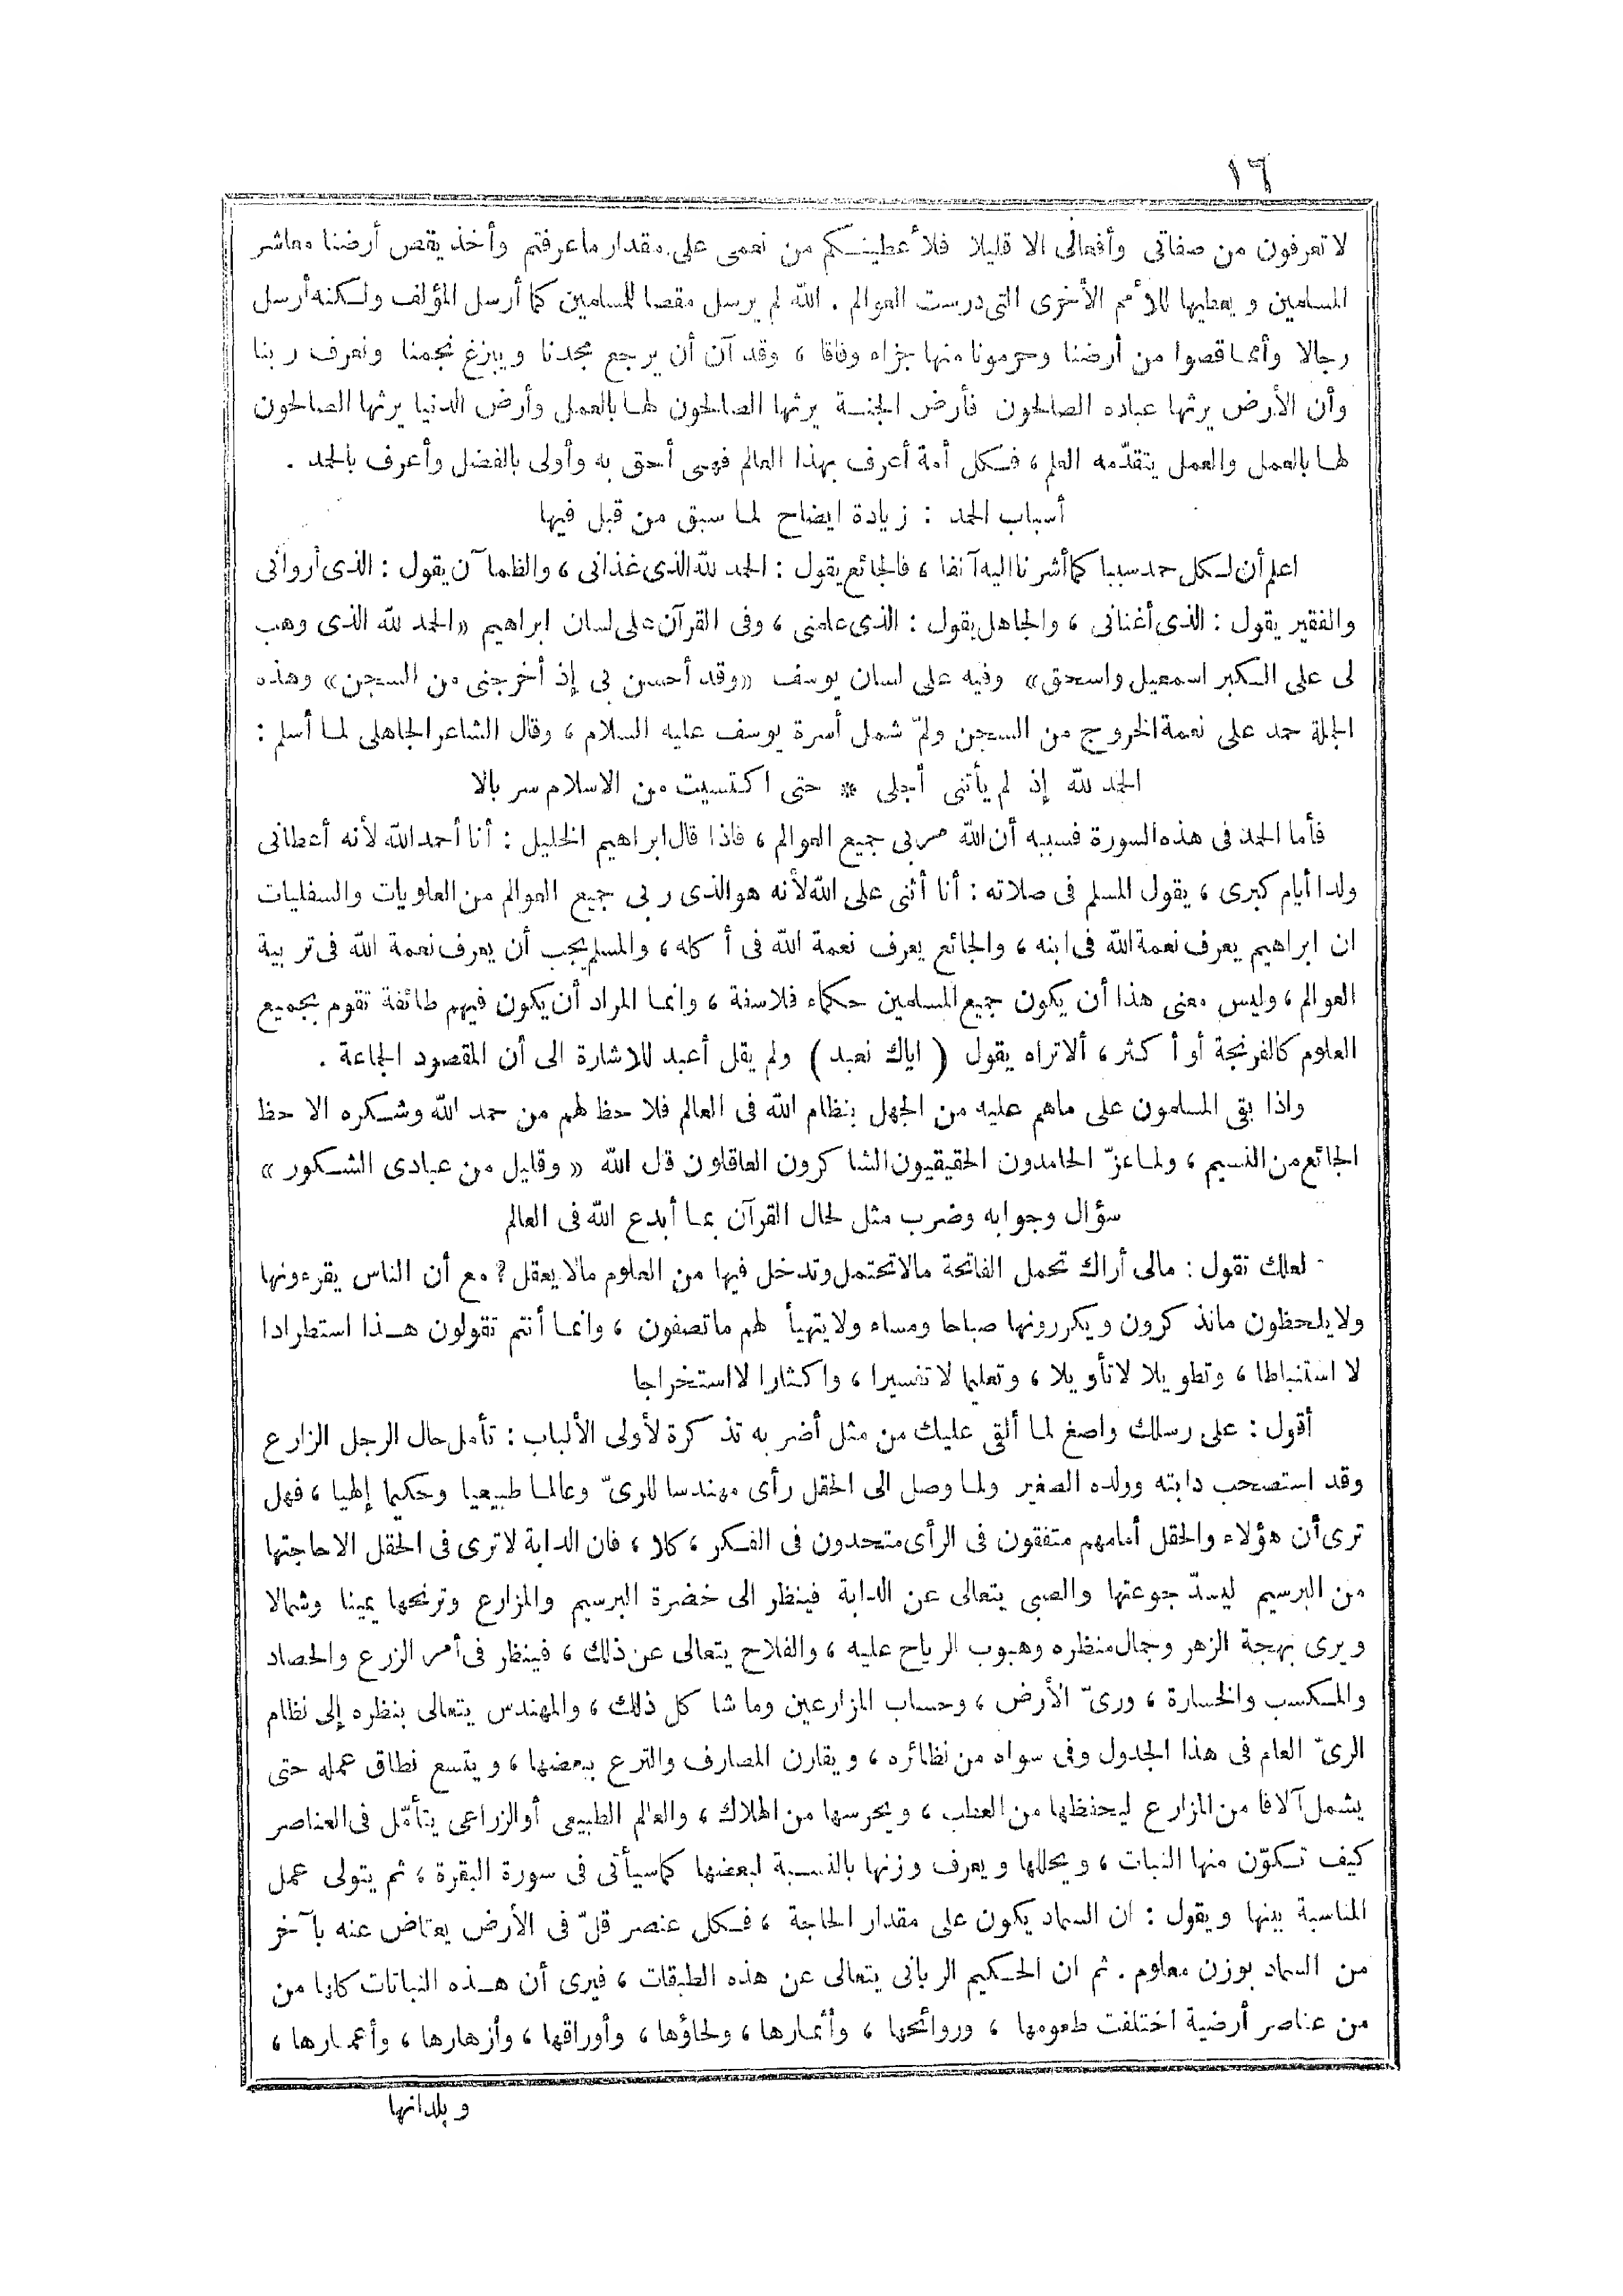 ١٦
لا تعرفون من صفاتى وأفعالى الا قليلا فلأعطينكم من نعمى على مقدار ما عرفتم وأخذ يقص أرضنا معاشر
المسلمين ويعطيها للأمم الأخرى التى درست العوالم . الله لم يرسل مقصا للمسلمين كما أرسل المؤلف ولكنه أرسل
رجالا وأمما قصوا من أرضنا وحرمونا منها جزاء وفاقا ، وقد آن أن يرجع مجدنا ويبزغ نجمنا ونعرف ربنا
وأن الأرض يرثها عباده الصالحون فأرض الجنة يرثها الصالحون لها بالعمل وأرض الدنيا يرثها الصالحون
لها بالعمل والعمل يتقدّمه العلم ، فكل أمة أعرف بهذا العالم فهى أحق به وأولى بالفضل وأعرف بالحمد .
أسباب الحمد : زيادة ايضاح لما سبق من قبل فيها
اعلم أن لكل حمد سببا كما أشرنا اليه آنفا ، فالجائع يقول : الحمد لله الذى غذانى ، والظمآن يقول : الذى أروانى
والفقير يقول : الذى أغنانى ، والجاهل يقول : الذى علمنى ، وفى القرآن على لسان ابراهيم «الحمد لله الذى وهب
لى على الكبر اسمعيل واسحق» وفيه على لسان يوسف «وقد أحسن بى إذ أخرجنى من السجن» وهذه
الجملة حمد على نعمة الخروج من السجن ولمّ شمل أسرة يوسف عليه السلام ، وقال الشاعر الجاهلى لما أسلم :
الحمد لله إذ لم يأتنى أجلى * حتى اكتسيت من الاسلام سربالا
فأما الحمد فى هذه السورة فسببه أن الله مربى جميع العوالم ، فاذا قال ابراهيم الخليل : أنا أحمد الله لأنه أعطانى
ولدا أيام كبرى ، يقول المسلم فى صلاته : أنا أثنى على الله لأنه هو الذى ربى جميع العوالم من العلويات والسفليات
ان ابراهيم يعرف نعمة الله فى ابنه ، والجائع يعرف نعمة الله فى أكله ، والمسلم يجب أن يعرف نعمة الله فى تربية
العوالم ، وليس معنى هذا أن يكون جميع المسلمين حكماء فلاسفة ، وانما المراد أن يكون فيهم طائفة تقوم بجميع
العلوم كالفرنجة أو أكثر ، ألا تراه يقول ( اياك نعبد ) ولم يقل أعبد للاشارة الى أن المقصود الجماعة .
واذا بقى المسلمون على ماهم عليه من الجهل بنظام الله فى العالم فلا حظ لهم من حمد الله وشكره الا حظ
الجائع من النسيم ، ولما عزّ الحامدون الحقيقيون الشاكرون العاقلون قال الله « وقليل من عبادى الشكور »
سؤال وجوابه وضرب مثل لحال القرآن بما أبدع الله فى العالم
لعلك تقول : مالى أراك تحمل الفاتحة مالا تحتمل وتدخل فيها من العلوم مالا يعقل ? مع أن الناس يقرءونها
ولا يلحظون ما تذكرون ويكررونها صباحا ومساء ولا يتهيأ لهم ما تصفون ، وانما أنتم تقولون هذا استطرادا
لا استنباطا ، وتطويلا لا تأويلا ، وتعليما لا تفسيرا ، واكثارا لا استخراجا
أقول : على رسلك واصغ لما ألقى عليك من مثل أضربه تذكرة لأولى الألباب : تأمل حال الرجل الزارع
وقد استصحب دابته وولده الصغير ولما وصل الى الحقل رأى مهندسا للرىّ وعالما طبيعيا وحكيما إلهيا ، فهل
ترى أن هؤلاء والحقل أمامهم متفقون فى الرأى متحدون فى الفكر ، كلا ، فان الدابة لا ترى فى الحقل الا حاجتها
من البرسيم ليسدّ جوعتها والصبى يتعالى عن الدابة فينظر الى خضرة البرسيم والمزارع وترنحها يمينا وشمالا
ويرى بهجة الزهر وجمال منظره وهبوب الرياح عليه ، والفلاح يتعالى عن ذلك ، فينظر فى أمر الزرع والحصاد
والمكسب والخسارة ، ورىّ الأرض ، وحساب المزارعين وما شاكل ذلك ، والمهندس يتعالى بنظره إلى نظام
الرىّ العام فى هذا الجدول وفى سواه من نظائره ، ويقارن المصارف والترع ببعضها ، ويتسع نطاق عمله حتى
يشمل آلافا من المزارع ليحفظها من العطب ، ويحرسها من الهلاك ، والعالم الطبيعى أو الزراعى يتأمّل فى العناصر
كيف تكوّن منها النبات ، ويحللها ويعرف وزنها بالنسبة لبعضها كما سيأتى فى سورة البقرة ، ثم يتولى عمل
المناسبة بينها ويقول : ان السماد يكون على مقدار الحاجة ، فكل عنصر قلّ فى الأرض يعتاض عنه بآخر
من السماد بوزن معلوم . ثم ان الحكيم الربانى يتعالى عن هذه الطبقات ، فيرى أن هذه النباتات كلها من
من عناصر أرضية اختلفت طعومها ، وروائحها ، وأثمارها ، ولحاؤها ، وأوراقها ، وأزهارها ، وأعمارها ،
وبلدانها